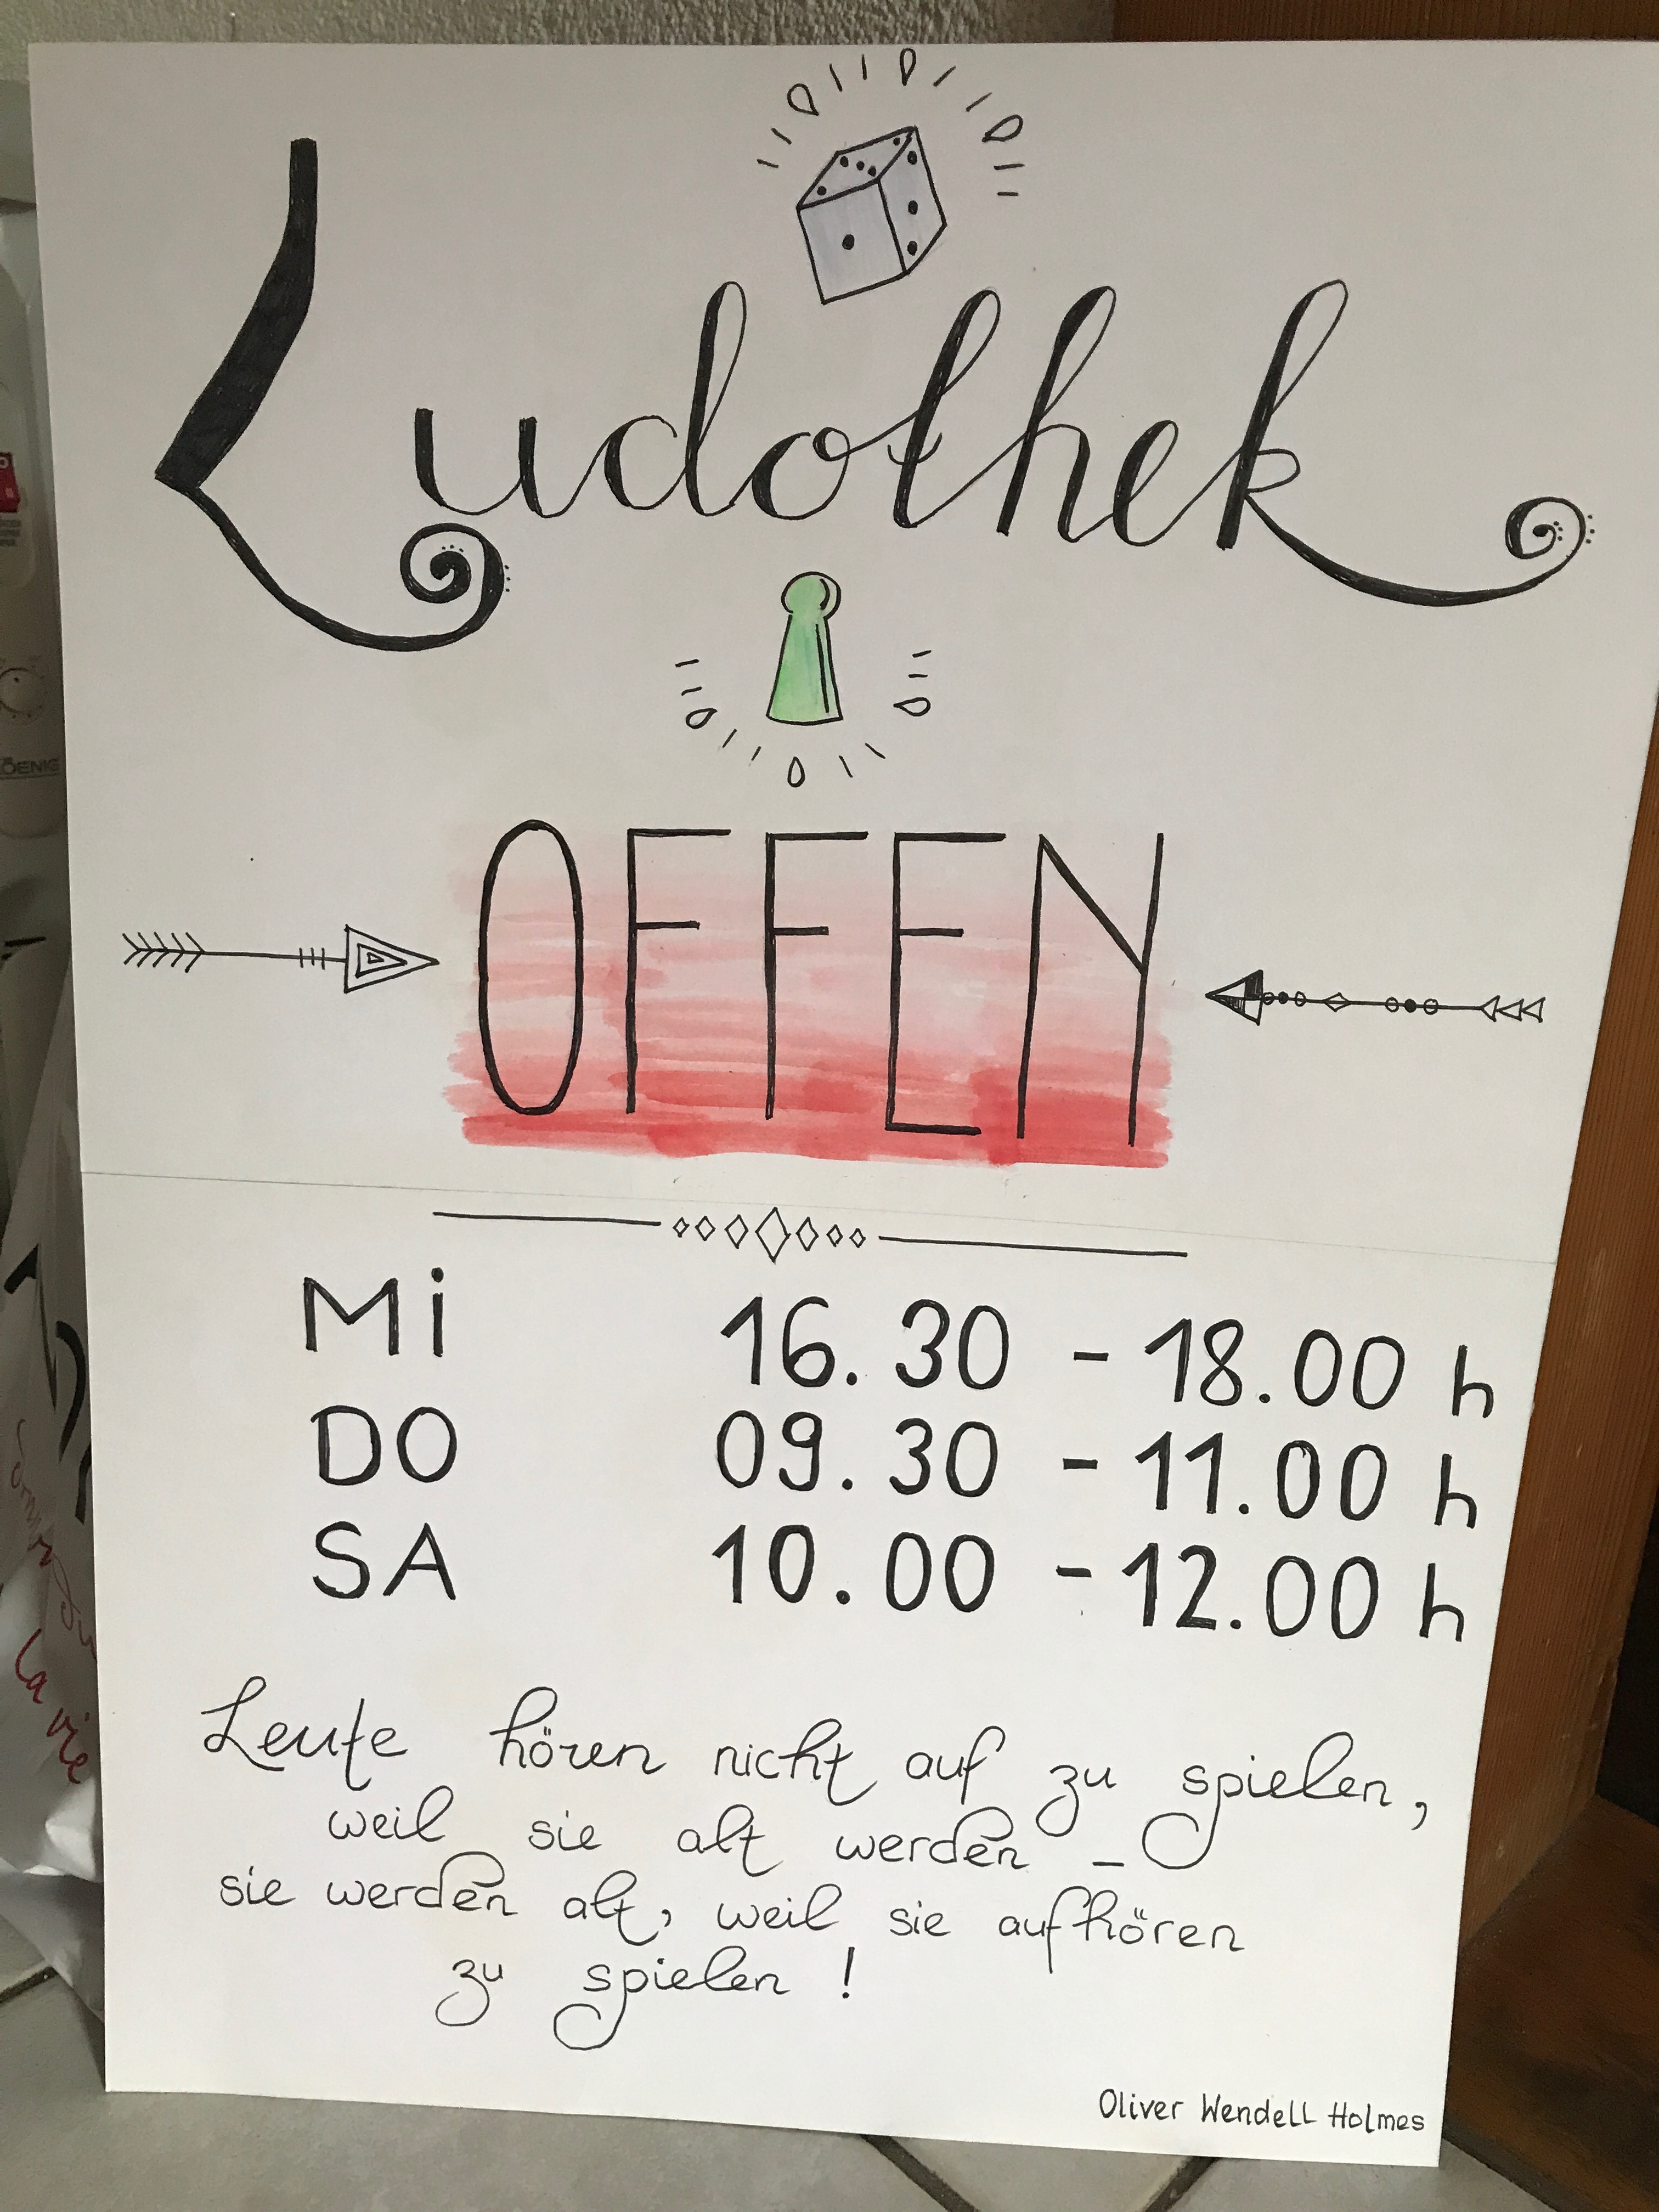 Ludothek
OFFEN
Mi 16.30 - 18.00 h
DO 09.30 - 11.00 h
SA 10.00 - 12.00 h
Leute hören nicht auf zu spielen,
weil sie alt werden –
sie werden alt, weil sie aufhören
zu spielen !
Oliver Wendell Holmes
la vie